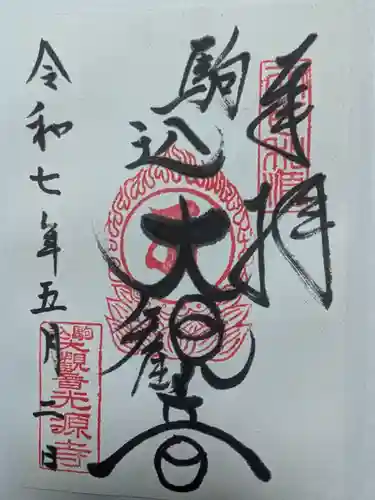 奉拝
駒込
大觀音
令和七年五月二日
駒込
大観音光源寺